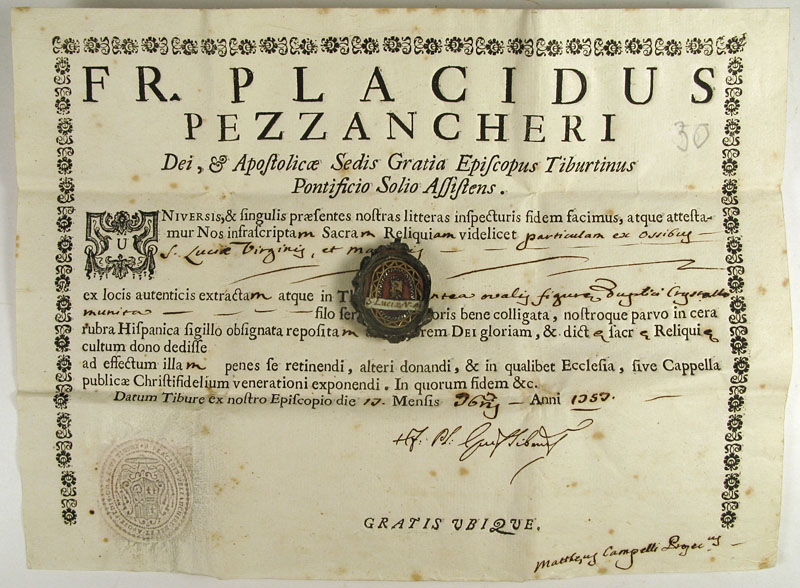 FR. PLACIDUS
PEZZANCHERI
30
Dei, & Apoſtolicæ Sedis Gratia Epiſcopus Tiburtinus
Pontificio Solio Aſſiſtens.
UNIVERSIS, & ſingulis præſentes noſtras litteras inſpecturis fidem facimus, atque atteſta-
mur Nos infraſcriptam Sacram Reliquiam videlicet particulam ex Ossibus
S. Luciæ Virginis, et
ex locis autenticis extractam atque in ovalis figuræ Crystallo
S. Lucia V. M.
munita filo bene colligata, noſtroque parvo in cera
rubra Hiſpanica ſigillo obſignata repoſitam DEI gloriam, & dictę ſacrę Reliquię
cultum dono dediſſe
ad effectum illam penes ſe retinendi, alteri donandi, & in qualibet Eccleſia, ſive Cappella
publicæ Chriſtifidelium venerationi exponendi. In quorum fidem &c.
Datum Tibure ex noſtro Epiſcopio die Mensis Anni 1757
GRATIS UBIQUE.
Matthæus Campelli